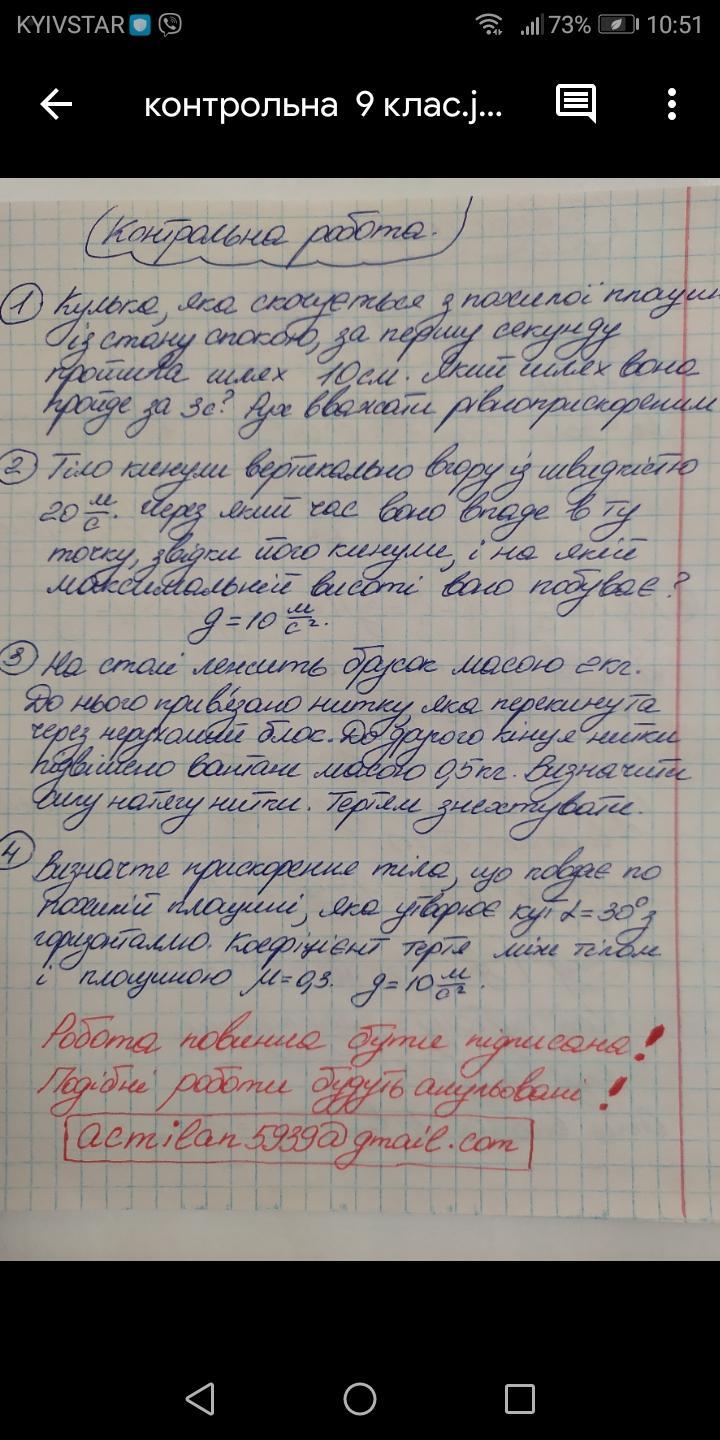 KYIVSTAR 73% 10:51
контрольна 9 клас.j...
Контрольна робота.
1 Кулька, яка скочується з похилої площин
із стану спокою, за першу секунду
пройшла шлях 10см. Який шлях вона
пройде за 3с? Рух вважати рівноприскореним
2 Тіло кинули вертикально вгору із швидкістю
20 м/с. Через який час воно впаде в ту
точку, звідки його кинули, і на якій
максимальній висоті воно побуває?
g=10 м/с².
3 На столі лежить брусок масою 2кг.
До нього прив'язано нитку, яка перекинута
через нерухомий блок. До другого кінця нитки
підвішено вантаж масою 0,5кг. Визначити
силу натягу нитки. Тертям знехтувати.
4 Визначте прискорення тіла, що ковзає по
похилій площині, яка утворює кут α=30° з
горизонталлю. Коефіцієнт тертя між тілом
і площиною μ=0,3. g=10 м/с².
Робота повинна бути підписана!
Подібні роботи будуть анульовані!
acmilan5939@gmail.com